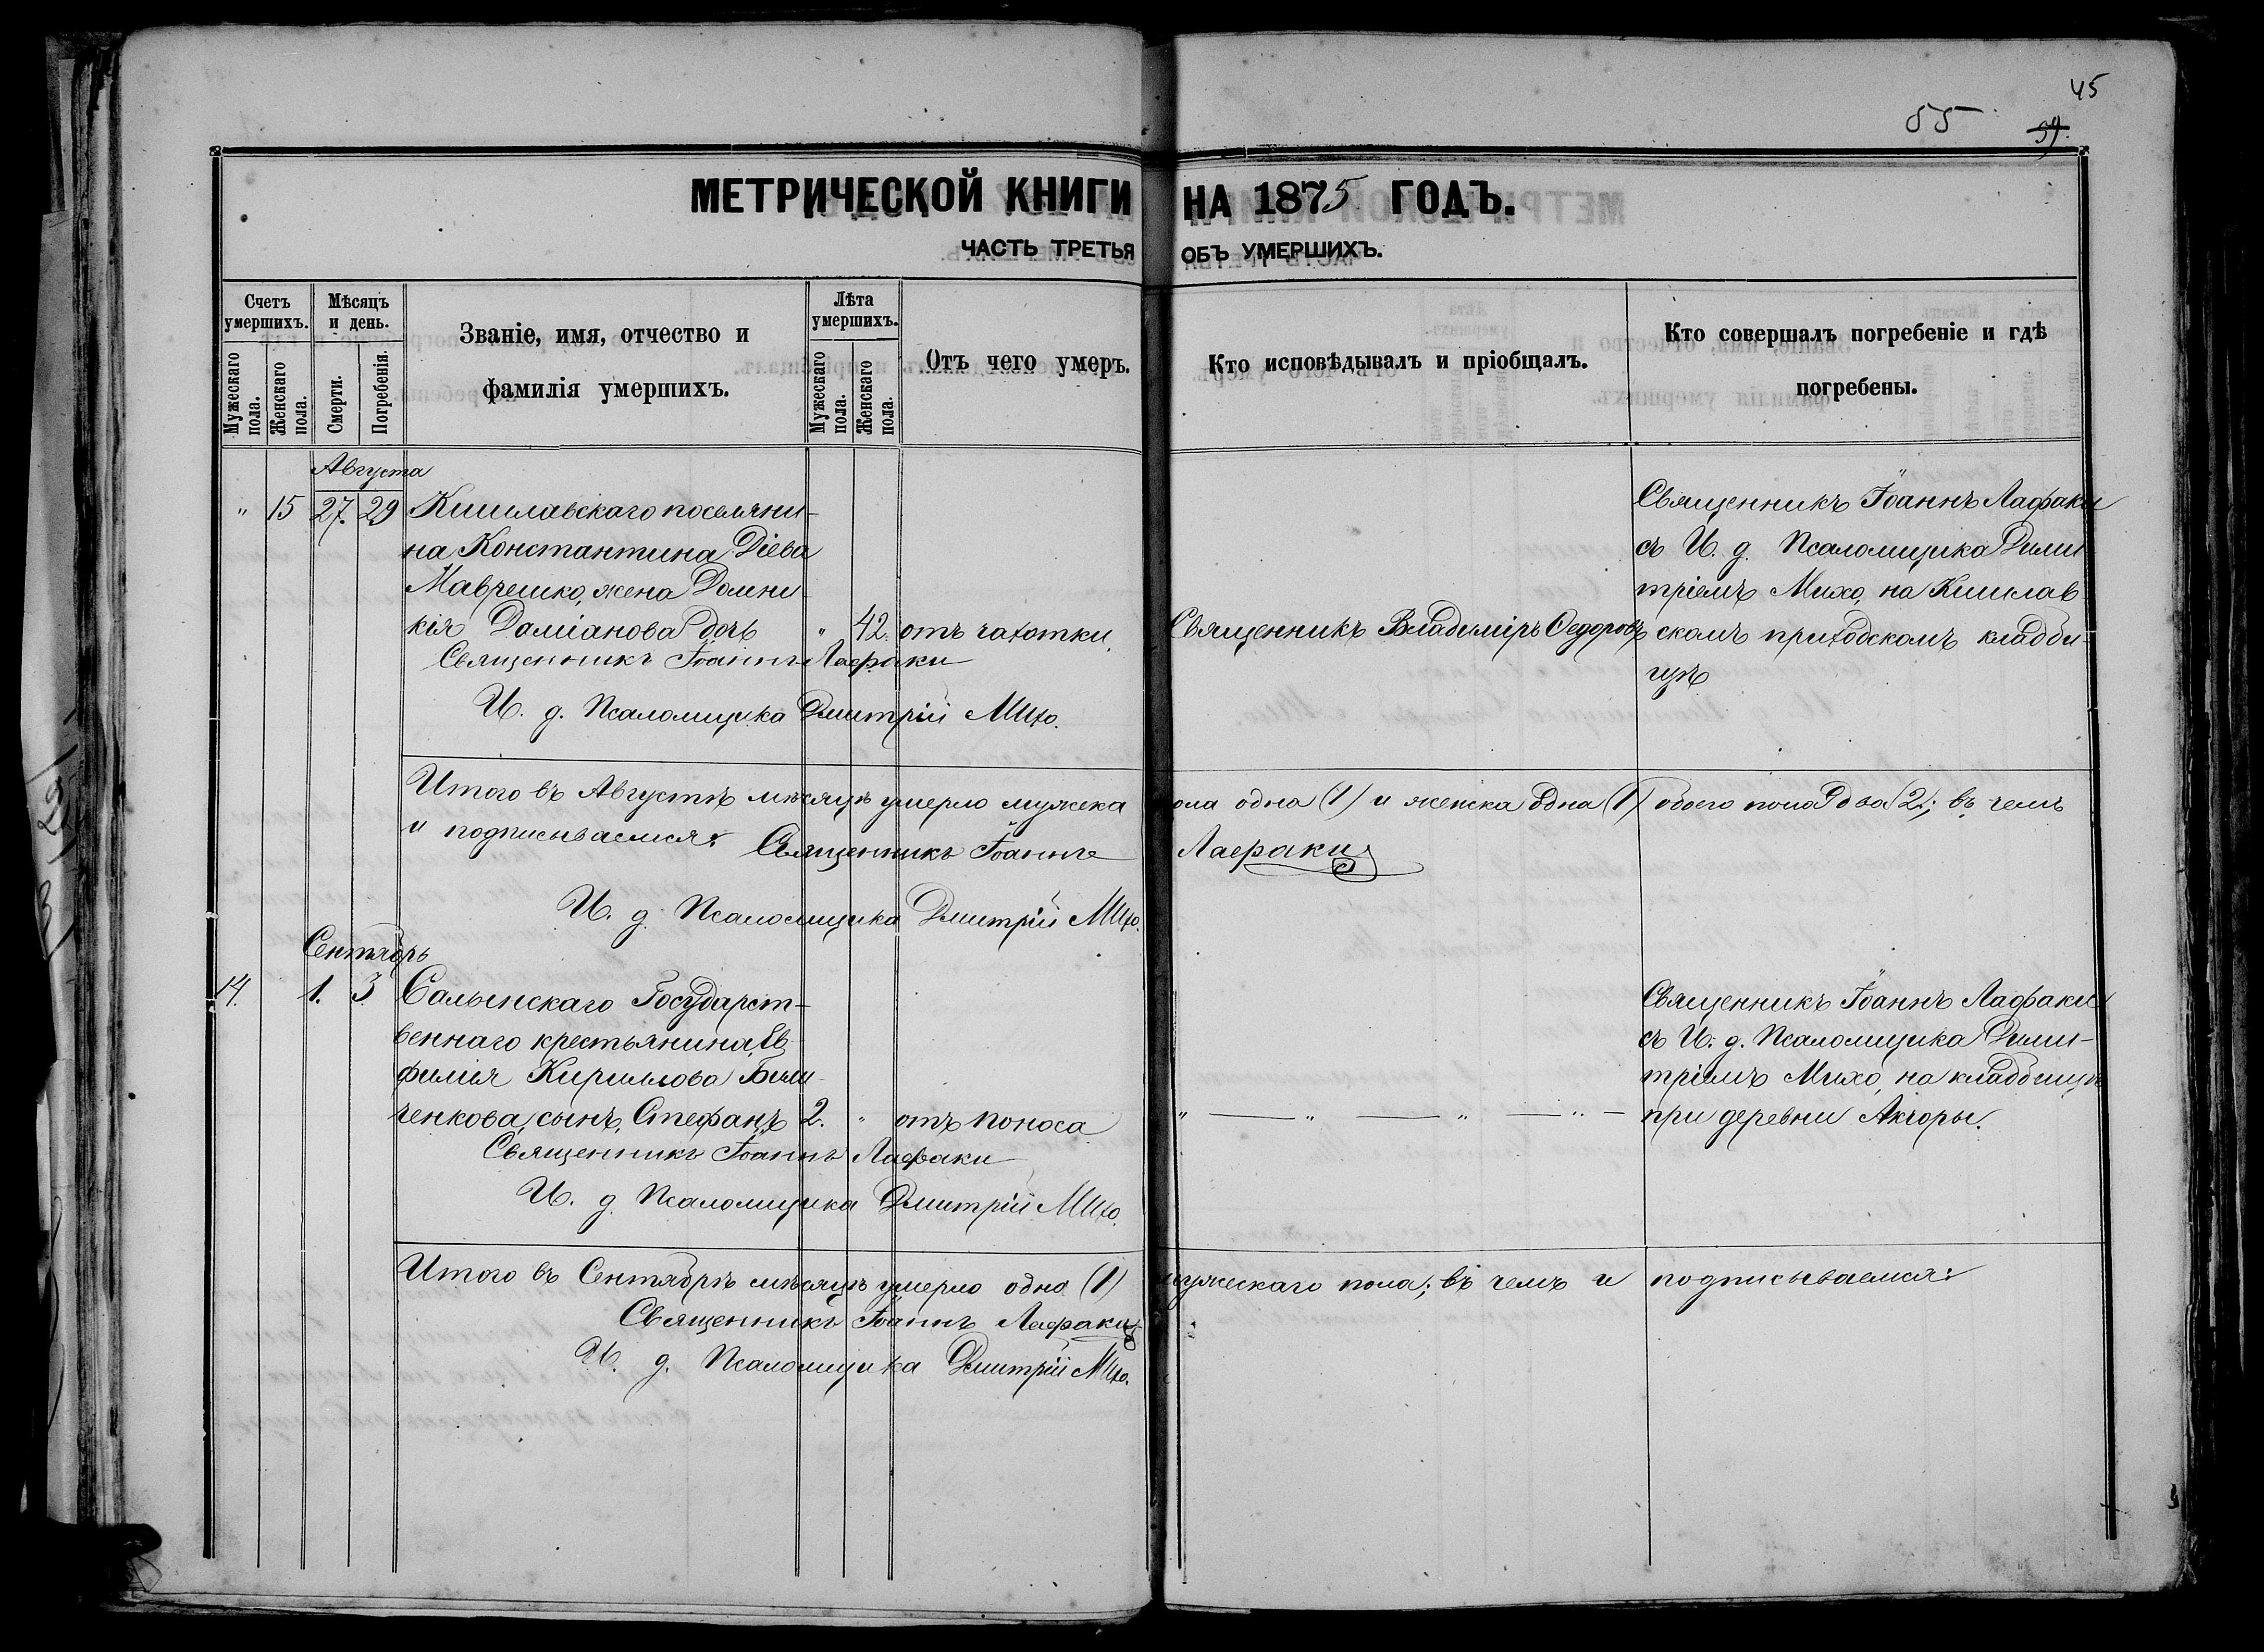 45
55
39.
МЕТРИЧЕСКОЙ КНИГИ НА 1875 ГОДЪ.
ЧАСТЬ ТРЕТЬЯ ОБЪ УМЕРШИХЪ.
Счетъ умершихъ.
Мужескаго пола.
Женскаго пола.
Мѣсяцъ и день.
Смерти.
Погребенія.
Званіе, имя, отчество и
фамилія умершихъ.
Лѣта умершихъ.
Мужескаго пола.
Женскаго пола.
Отъ чего умеръ.
Кто исповѣдывалъ и пріобщалъ.
Кто совершалъ погребеніе и гдѣ
погребены.
Августа
" 15 27. 29 Кишлавскаго поселяни-
на Константина Діева
Мавчешко, жена Домни-
кія Даміанова дочь " 42. отъ чахотки.
Священникъ Владиміръ Федоровъ
Священникъ Іоаннъ Лафаки
съ И. д. Псаломщика Дими
тріемъ Михо, на Кишлав
скомъ приходскомъ кладби-
щѣ
Священникъ Іоаннъ Лафаки
И. д. Псаломщика Дмитрій Михо.
Итого въ Августѣ мѣсяцѣ умерло мужска пола одна (1) и женска одна (1) обоего пола два (2); въ чемъ
и подписываемся: Священникъ Іоаннъ Лафаки
И. д. Псаломщика Дмитрій Михо.
Сентябрь
14. 1. 3 Салынскаго Государст-
веннаго крестьянина, Ев
фимія Кириллова Били-
ченкова, сынъ, Стефанъ 2. " отъ поноса
" — " — " — " —
Священникъ Іоаннъ Лафаки
съ И. д. Псаломщика Дими-
тріемъ Михо, на кладбищѣ
при деревни Акчоры.
Священникъ Іоаннъ Лафаки
И. д. Псаломщика Дмитрій Михо.
Итого въ Сентябрѣ мѣсяцѣ умерло одно (1) мужескаго пола; въ чемъ и подписываемся:
Священникъ Іоаннъ Лафаки
И. д. Псаломщика Дмитрій Михо.